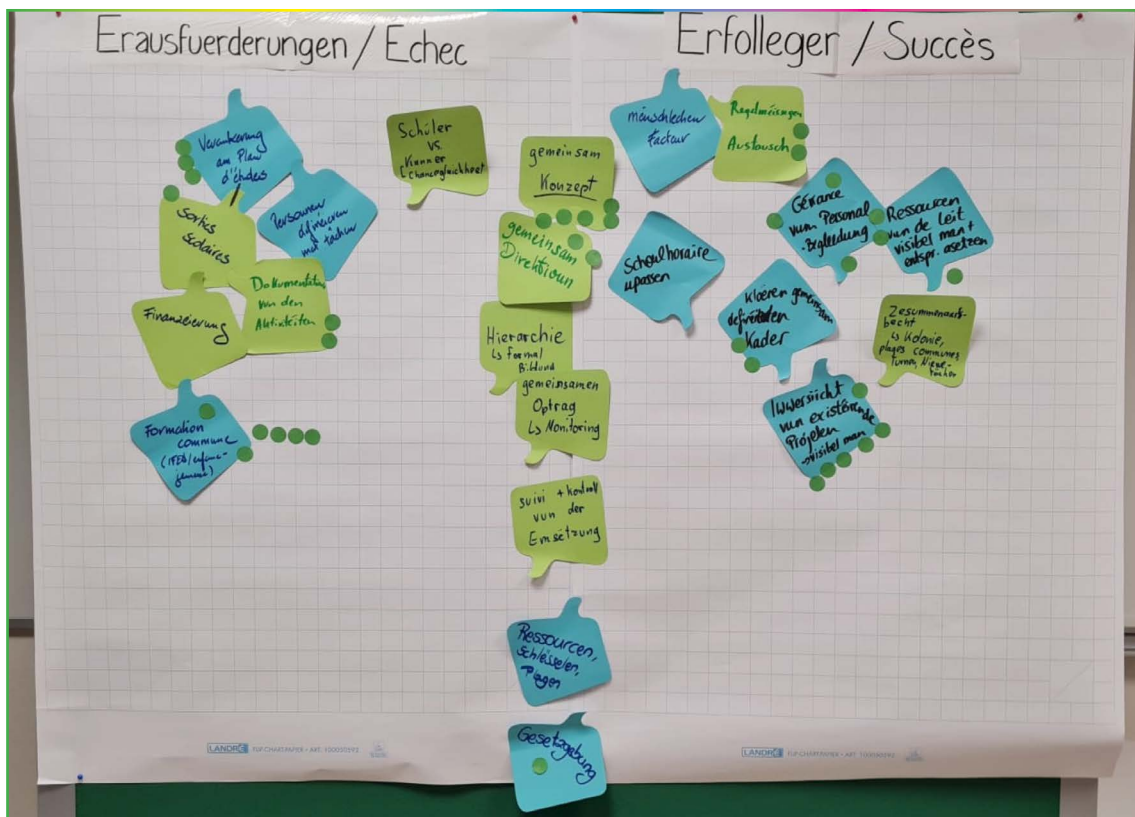 Erausfuerderungen / Echec
Verankerung
am Plan
d'études
Personnen
définéieren
mat
Sorties
scolaires
Dokumentation
vun den
Aktivitéiten
Finanzéierung
Formation
commune
Schüler
vs.
Kanner
gemeinsam
Konzept
gemeinsam
Direktioun
Hierarchie
↳ formal
Bildung
gemeinsamen
Optrag
↳ Monitoring
suivi + Kontroll
vun der
Emsetzung
Ressourcen,
Schlësselen,
Plagen
Gesetzgebung
Erfolleger / Succès
mënschlechen
Facteur
Regelméissegen
Austausch
Schoulhoraire
upassen
Gérance
vum Personal
- Begleedung
Ressourcen
vun de Leit
visibel man +
entspr. asetzen
Kloeren gemeinsam
definéierten
Kader
Zesummenaar-
becht
↳ Kolonie,
plages communes,
turnen,
Iwwersiicht
vun existéirende
Projeten
→ visibel man
LANDRÉ FLIP CHART-PAPER • ART. 100050592
LANDRÉ FLIP CHART-PAPER • ART. 100050592